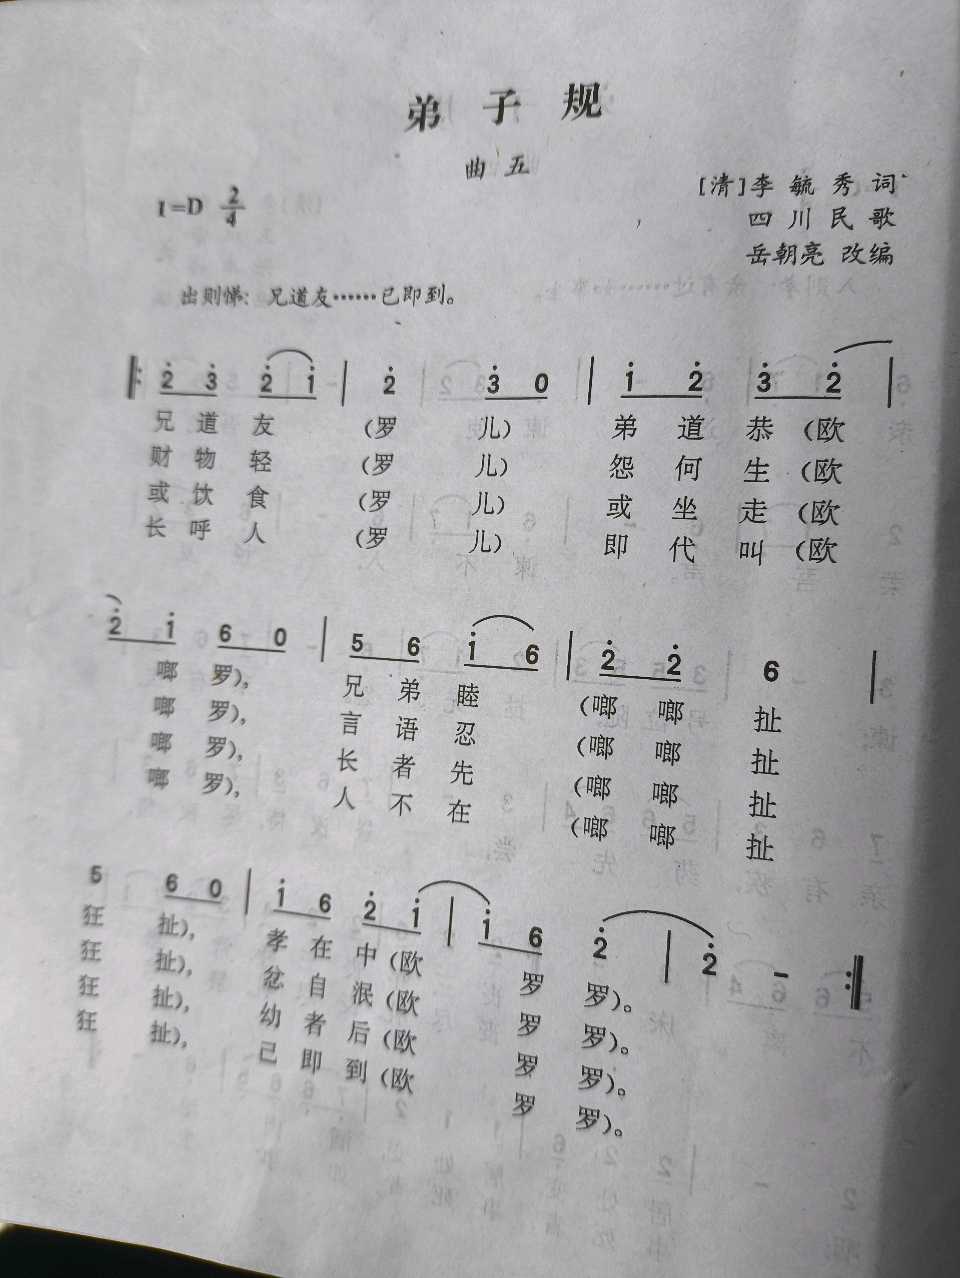 弟 子 规
曲 五
1=D 2/4
[清]李 毓 秀 词
四 川 民 歌
岳朝亮 改编
出则悌：兄道友……已即到。
‖: 2̇ 3̇ 2̇ 1̇ | 2̇ 3̇ 0 | 1̇ 2̇ 3̇ 2̇ |
兄 道 友 (罗 儿) 弟 道 恭 (欧
财 物 轻 (罗 儿) 怨 何 生 (欧
或 饮 食 (罗 儿) 或 坐 走 (欧
长 呼 人 (罗 儿) 即 代 叫 (欧
2̇ 1̇ 6 0 | 5 6 1̇ 6 | 2̇ 2̇ 6 |
啷 罗)， 兄 弟 睦 (啷 啷 扯
啷 罗)， 言 语 忍 (啷 啷 扯
啷 罗)， 长 者 先 (啷 啷 扯
啷 罗)， 人 不 在 (啷 啷 扯
5 6 0 | 1̇ 6 2̇ 1̇ | 1̇ 6 2̇ | 2̇ - :‖
狂 扯)， 孝 在 中 (欧 罗 罗)。
狂 扯)， 忿 自 泯 (欧 罗 罗)。
狂 扯)， 幼 者 后 (欧 罗 罗)。
狂 扯)， 己 即 到 (欧 罗 罗)。